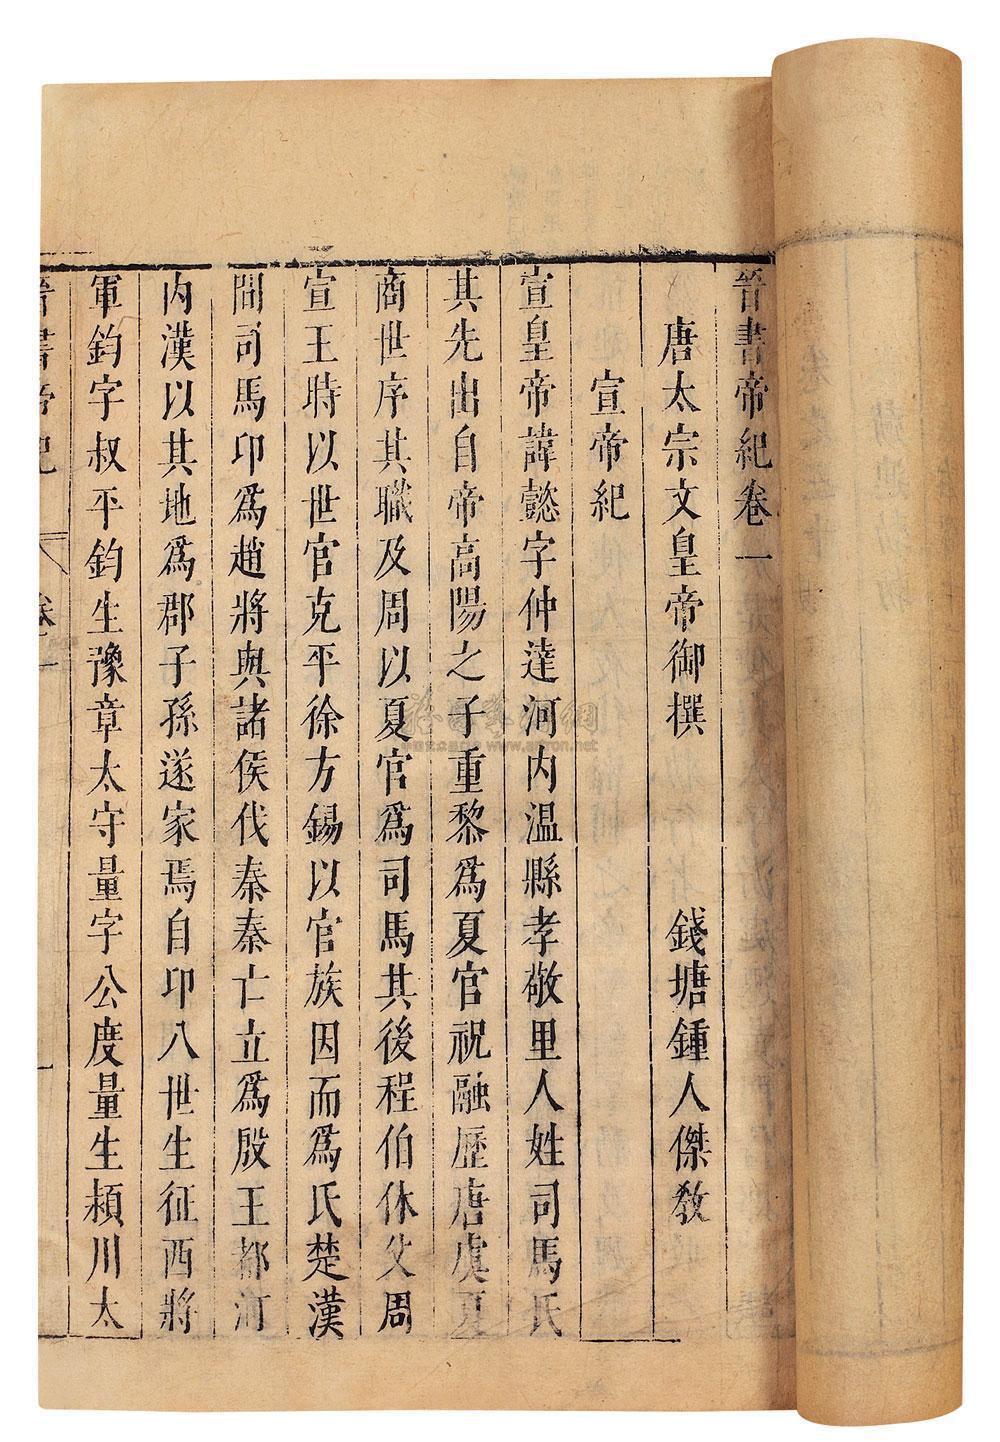 晉書帝紀卷一
唐太宗文皇帝御撰　錢塘鍾人傑敎
宣帝紀
宣皇帝諱懿字仲達河內溫縣孝敬里人姓司馬氏
其先出自帝高陽之子重黎爲夏官祝融歷唐虞夏
商世序其職及周以夏官爲司馬其後程伯休父周
宣王時以世官克平徐方錫以官族因而爲氏楚漢
間司馬卬爲趙將與諸侯伐秦秦亡立爲殷王都河
內漢以其地爲郡子孫遂家焉自卬八世生征西將
軍鈞字叔平鈞生豫章太守量字公度量生潁川太
晉書帝紀 卷一 一
www.artron.net